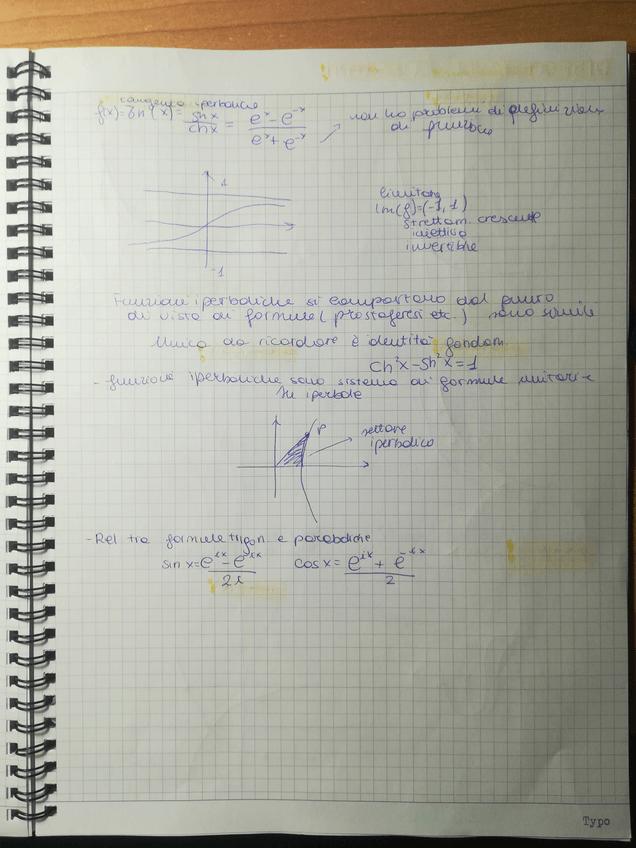 tangente iperbolica
f(x)=Tn(x)= shx/chx = e^x - e^-x / e^x + e^-x
non ho problemi di definizione
di funzione
1
-1
limitata
Im(f)=(-1,1)
strettam. crescente
iniettiva
invertibile
Funzioni iperboliche si comportano dal punto
di vista di formule (prostaferesi etc.) sono simili
Unica da ricordare è identità fondam.
Ch²x-Sh²x=1
- funzioni iperboliche sono sistema di formule unitarie
su iperbole
P
settore
iperbolico
-Rel tra formule trigon e paraboliche
sin x= e^ix - e^-ix / 2i cos x= e^ix + e^-ix / 2
Typo